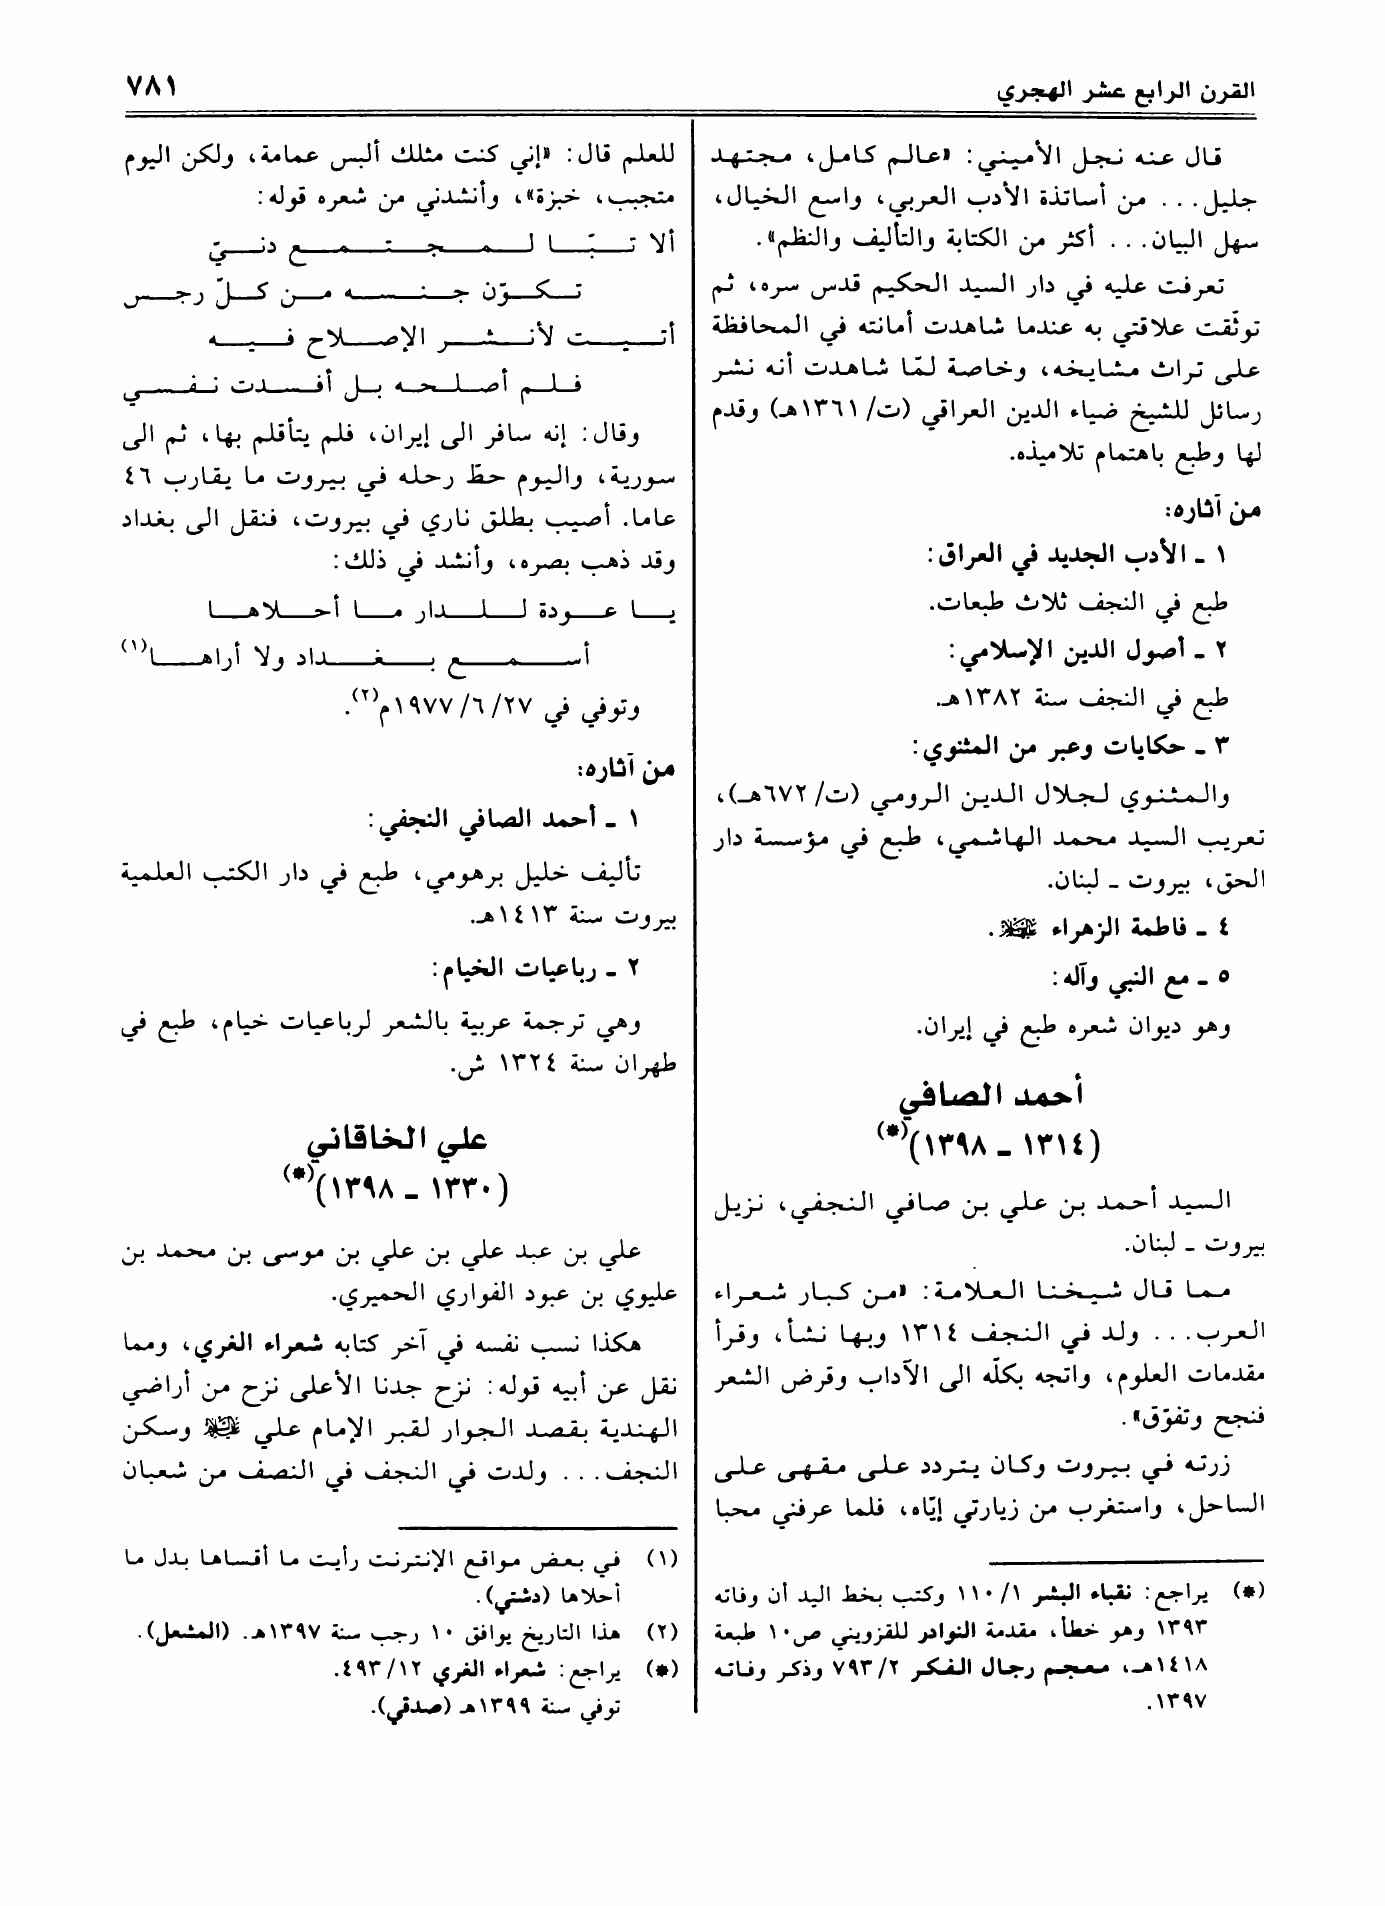 القرن الرابع عشر الهجري
٧٨١
قال عنه نجل الأميني: «عالم كامل، مجتهد
جليل... من أساتذة الأدب العربي، واسع الخيال،
سهل البيان... أكثر من الكتابة والتأليف والنظم».
تعرفت عليه في دار السيد الحكيم قدس سره، ثم
توثّقت علاقتي به عندما شاهدت أمانته في المحافظة
على تراث مشايخه، وخاصة لمّا شاهدت أنه نشر
رسائل للشيخ ضياء الدين العراقي (ت/ ١٣٦١هـ) وقدم
لها وطبع باهتمام تلاميذه.
من آثاره:
١ ـ الأدب الجديد في العراق:
طبع في النجف ثلاث طبعات.
٢ ـ أصول الدين الإسلامي:
طبع في النجف سنة ١٣٨٢هـ.
٣ ـ حكايات وعبر من المثنوي:
والمثنوي لجلال الدين الرومي (ت/ ٦٧٢هـ)،
تعريب السيد محمد الهاشمي، طبع في مؤسسة دار
الحق، بيروت ـ لبنان.
٤ ـ فاطمة الزهراء .
٥ ـ مع النبي وآله:
وهو ديوان شعره طبع في إيران.
أحمد الصافي
(١٣١٤ ـ ١٣٩٨)(*)
السيد أحمد بن علي بن صافي النجفي، نزيل
بيروت ـ لبنان.
مما قال شيخنا العلامة: «من كبار شعراء
العرب... ولد في النجف ١٣١٤ وبها نشأ، وقرأ
مقدمات العلوم، واتجه بكلّه الى الآداب وقرض الشعر
فنجح وتفوّق».
زرته في بيروت وكان يتردد على مقهى على
الساحل، واستغرب من زيارتي إيّاه، فلما عرفني محبا
(*) يراجع: نقباء البشر ١/ ١١٠ وكتب بخط اليد أن وفاته
١٣٩٣ وهو خطأ، مقدمة النوادر للقزويني ص١٠ طبعة
١٤١٨هـ، معجم رجال الفكر ٢/ ٧٩٣ وذكر وفاته
١٣٩٧.
للعلم قال: «إني كنت مثلك ألبس عمامة، ولكن اليوم
متجبب، خبزة»، وأنشدني من شعره قوله:
ألا تبّا لمجتمع دنيّ
تكوّن جنسه من كلّ رجس
أتيت لأنشر الإصلاح فيه
فلم أصلحه بل أفسدت نفسي
وقال: إنه سافر الى إيران، فلم يتأقلم بها، ثم الى
سورية، واليوم حطّ رحله في بيروت ما يقارب ٤٦
عاما. أصيب بطلق ناري في بيروت، فنقل الى بغداد
وقد ذهب بصره، وأنشد في ذلك:
يا عودة للدار ما أحلاها
أسمع بغداد ولا أراها(١)
وتوفي في ٢٧/ ٦/ ١٩٧٧م(٢).
من آثاره:
١ ـ أحمد الصافي النجفي:
تأليف خليل برهومي، طبع في دار الكتب العلمية
بيروت سنة ١٤١٣هـ.
٢ ـ رباعيات الخيام:
وهي ترجمة عربية بالشعر لرباعيات خيام، طبع في
طهران سنة ١٣٢٤ ش.
علي الخاقاني
(١٣٣٠ ـ ١٣٩٨)(*)
علي بن عبد علي بن علي بن موسى بن محمد بن
عليوي بن عبود الفواري الحميري.
هكذا نسب نفسه في آخر كتابه شعراء الغري، ومما
نقل عن أبيه قوله: نزح جدنا الأعلى نزح من أراضي
الهندية بقصد الجوار لقبر الإمام علي وسكن
النجف... ولدت في النجف في النصف من شعبان
(١) في بعض مواقع الإنترنت رأيت ما أقساها بدل ما
أحلاها (دشتي).
(٢) هذا التاريخ يوافق ١٠ رجب سنة ١٣٩٧هـ. (المشعل).
(*) يراجع: شعراء الغري ١٢/ ٤٩٣.
توفي سنة ١٣٩٩هـ (صدقي).